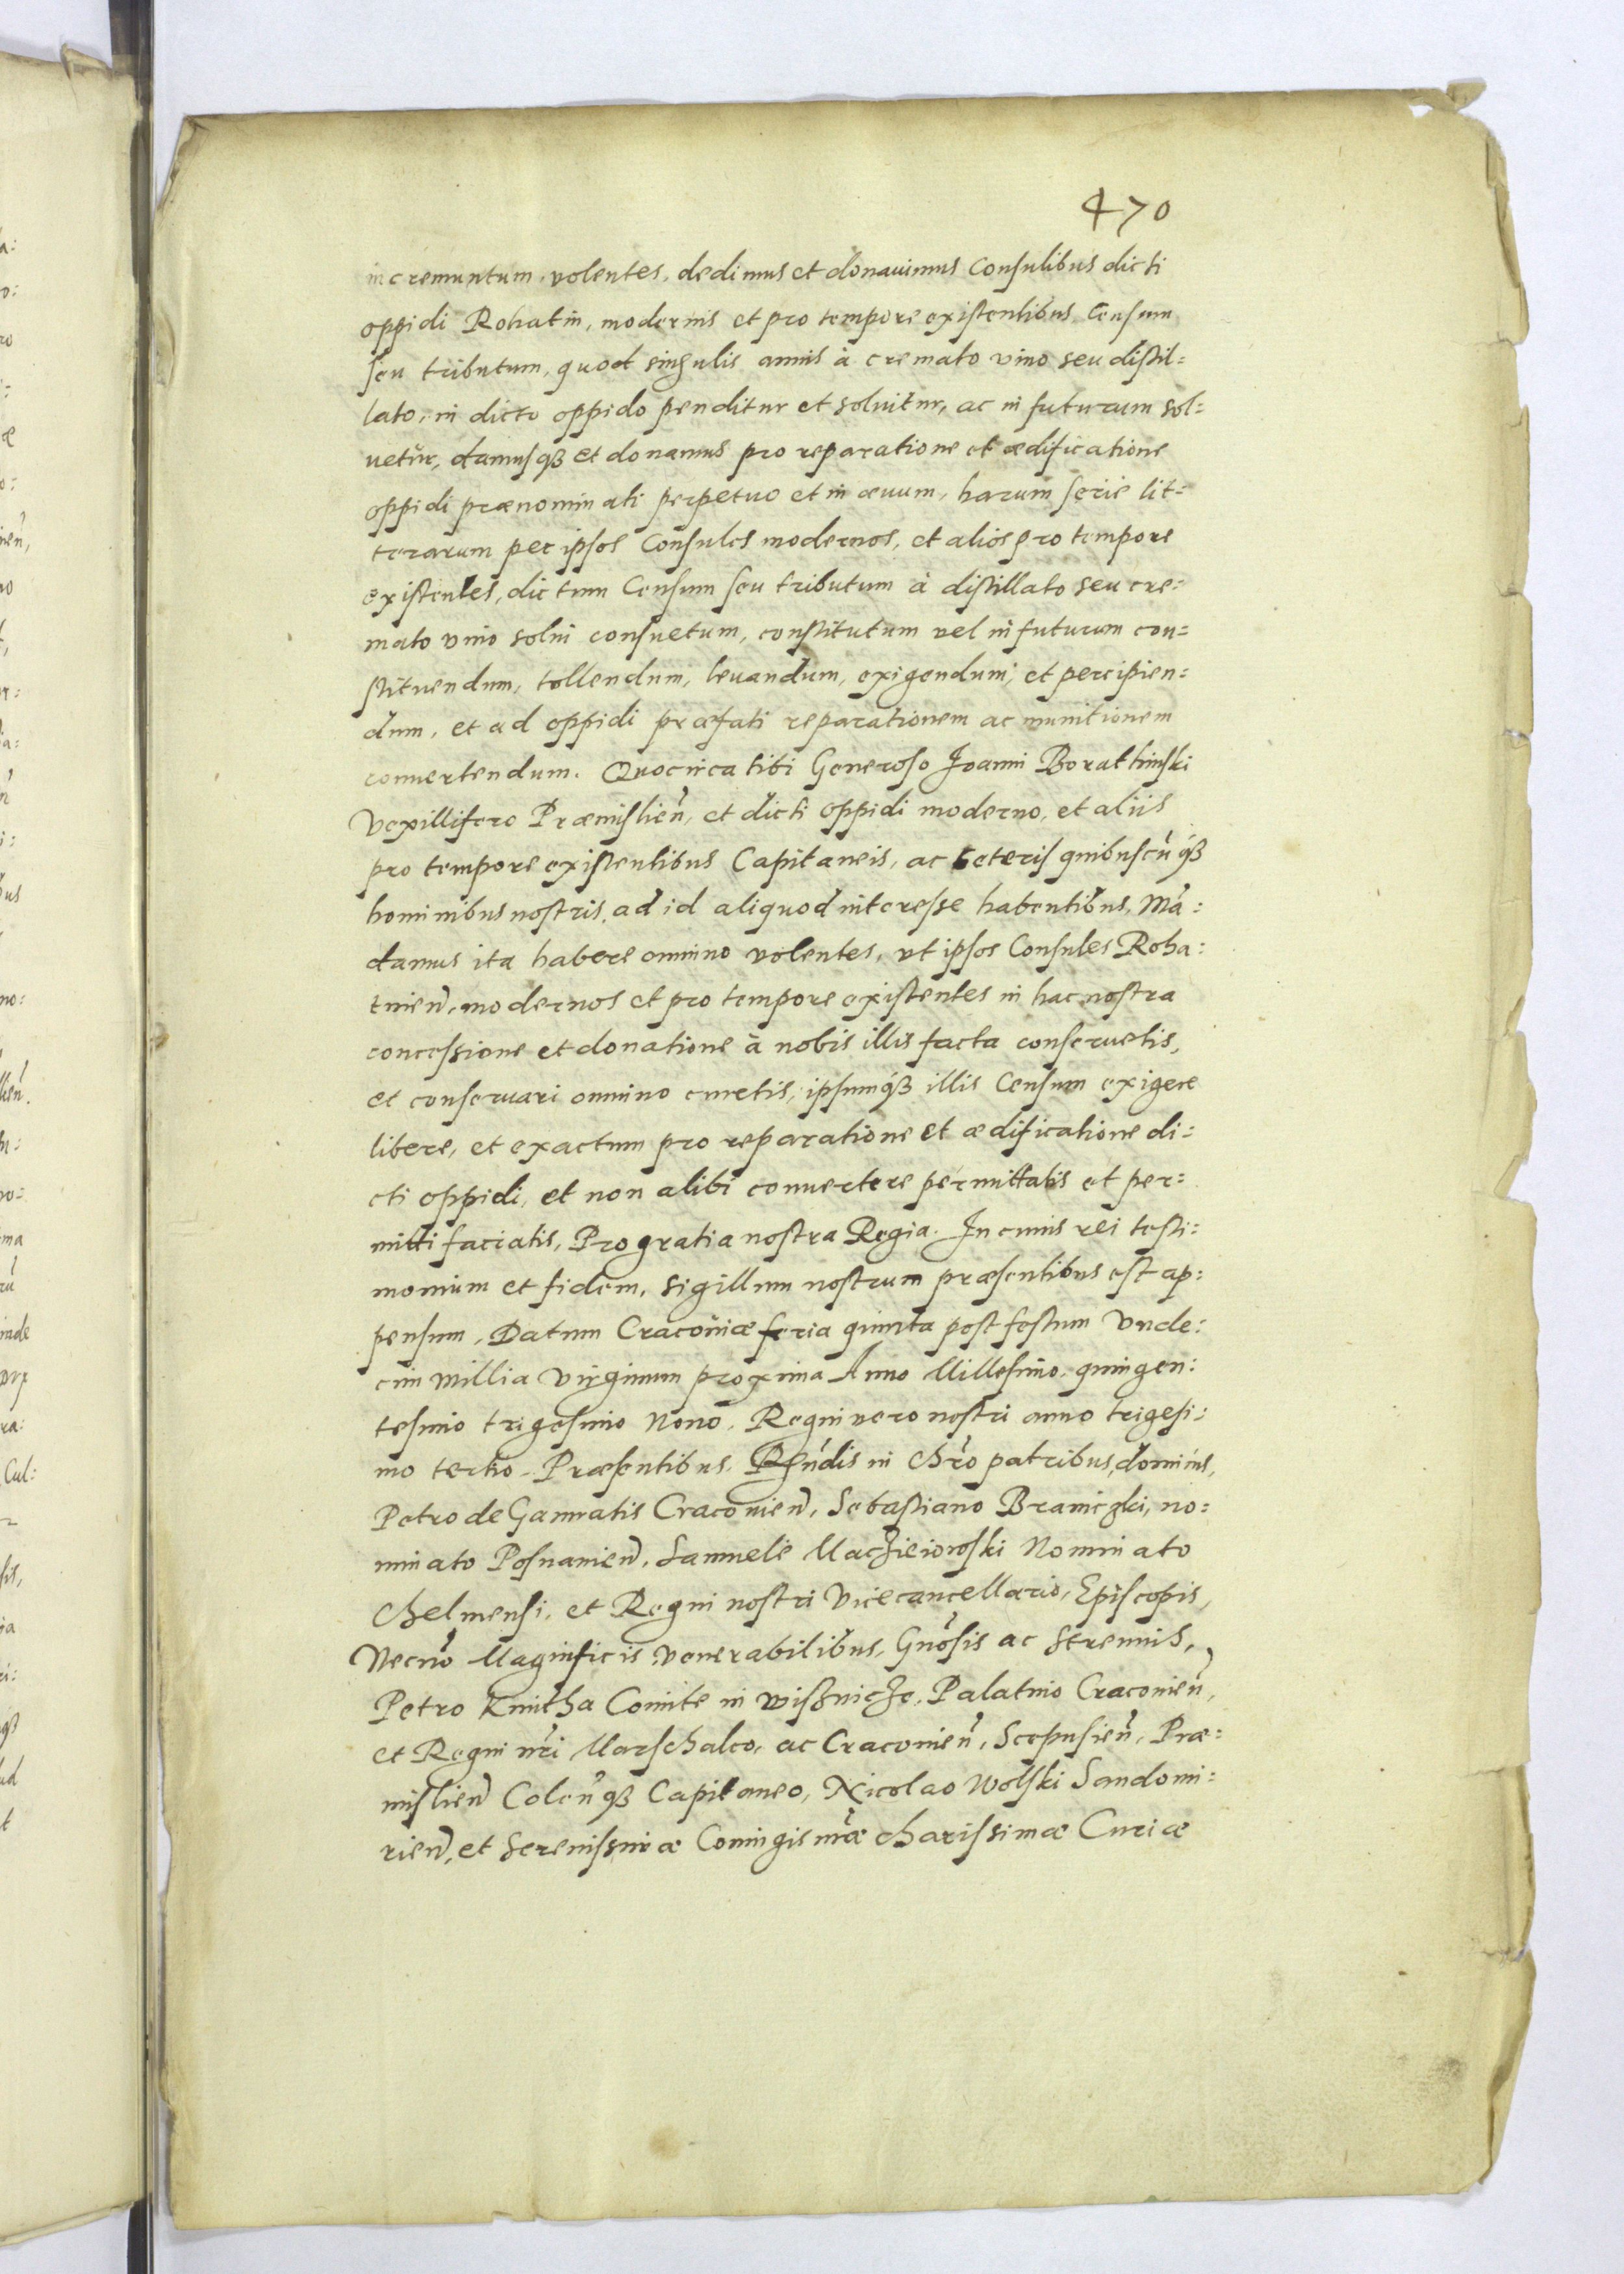 470
incrementum volentes, dedimus et donauimus Consulibus dicti
oppidi Rohatin, modernis et pro tempore existentibus Censum
seu tributum, quod singulis annis à cremato vino seu distil=
lato, in dicto oppido penditur et soluitur, ac in futurum sol=
uetur, damusq₃ et donamus pro reparatione et ædificatione
oppidi prænominati perpetuo et in æuum, harum serie lit=
terarum per ipsos Consules modernos, et alios pro tempore
existentes, dictum Censum seu tributum à distillato seu cre=
mato vino solui consuetum, constitutum vel in futurum con=
stituendum, tollendum, leuandum, exigendum, et percipien=
dum, et ad oppidi præfati reparationem ac munitionem
conuertendum. Quocirca tibi Generoso Joanni Borathinski
Vexillifero Præmislien̄, et dicti oppidi moderno, et aliis
pro tempore existentibus Capitaneis, ac ceteris quibuscūq₃
hominibus nostris, ad id aliquod interesse habentibus, Mā=
damus ita habere omnino volentes, vt ipsos Consules Roha=
tinien̄, modernos et pro tempore existentes in hac nostra
concessione et donatione à nobis illis facta conseruetis,
et conseruari omnino curetis, ipsumq₃ illis Censum exigere
libere, et exactum pro reparatione et ædificatione di=
cti oppidi, et non alibi conuertere permittatis et per=
mitti faciatis, Pro gratia nostra Regia. In cuius rei testi=
monium et fidem, sigillum nostrum præsentibus est ap=
pensum, Datum Cracoviæ feria quinta post festum Vnde=
cim millia Virginum proxima Anno Millesimo quingen=
tesimo trigesimo Nono, Regni vero nostri anno trigesi=
mo tertio. Præsentibus Rn̄dis in Chrō patribus, dominis,
Petro de Gamratis Cracovien̄, Sebastiano Braniczki, no=
minato Posnanien̄, Samuele Macżieiowski Nominato
Chelmensi, et Regni nostri Vicecancellario, Episcopis,
Necnō Magnificis, venerabilibus, Gnōsis ac Strenuis,
Petro Kmitha Comite in wisżnicże, Palatino Cracovien̄,
et Regni nr̄i Marschalco, ac Cracovien̄, Scepusien̄, Præ=
mislien̄ Colen̄q₃ Capitaneo, Nicolao Wolski Sandomi=
rien̄, et Serenissimæ Coniugis nræ charissimæ Curiæ